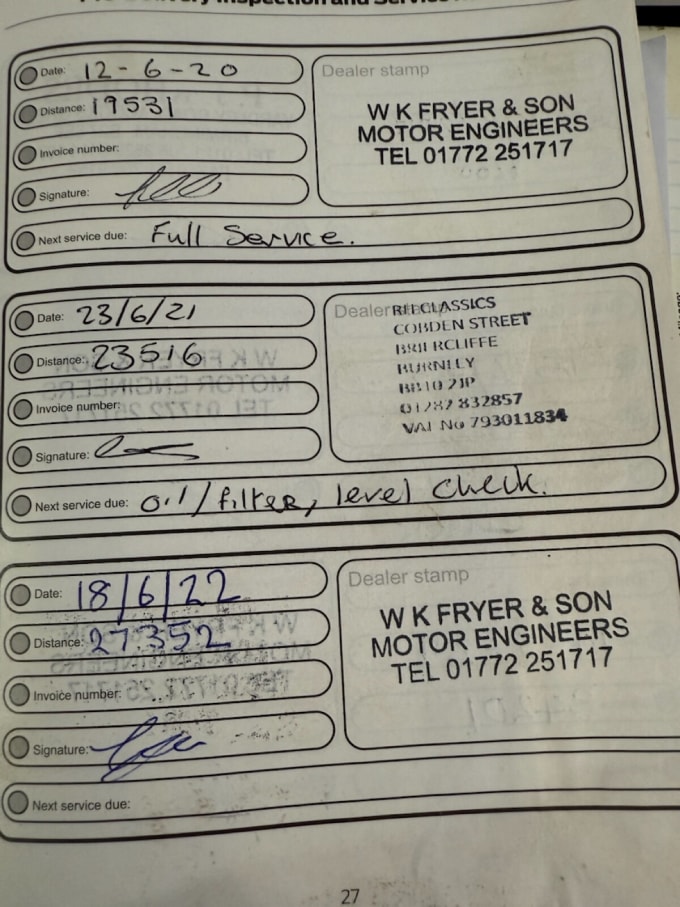 Date: 12-6-20
Distance: 19531
Invoice number:
Signature:
Next service due: Full Service.
Dealer stamp
W K FRYER & SON
MOTOR ENGINEERS
TEL 01772 251717
Date: 23/6/21
Distance: 23516
Invoice number:
Signature:
Next service due: oil/filter, level check.
Dealer stamp
CLASSICS
COBDEN STREET
BRIERCLIFFE
BURNLEY
BB10 2JP
01282 832857
VAT No 793011834
Date: 18/6/22
Distance: 27352
Invoice number:
Signature:
Next service due:
Dealer stamp
W K FRYER & SON
MOTOR ENGINEERS
TEL 01772 251717
27